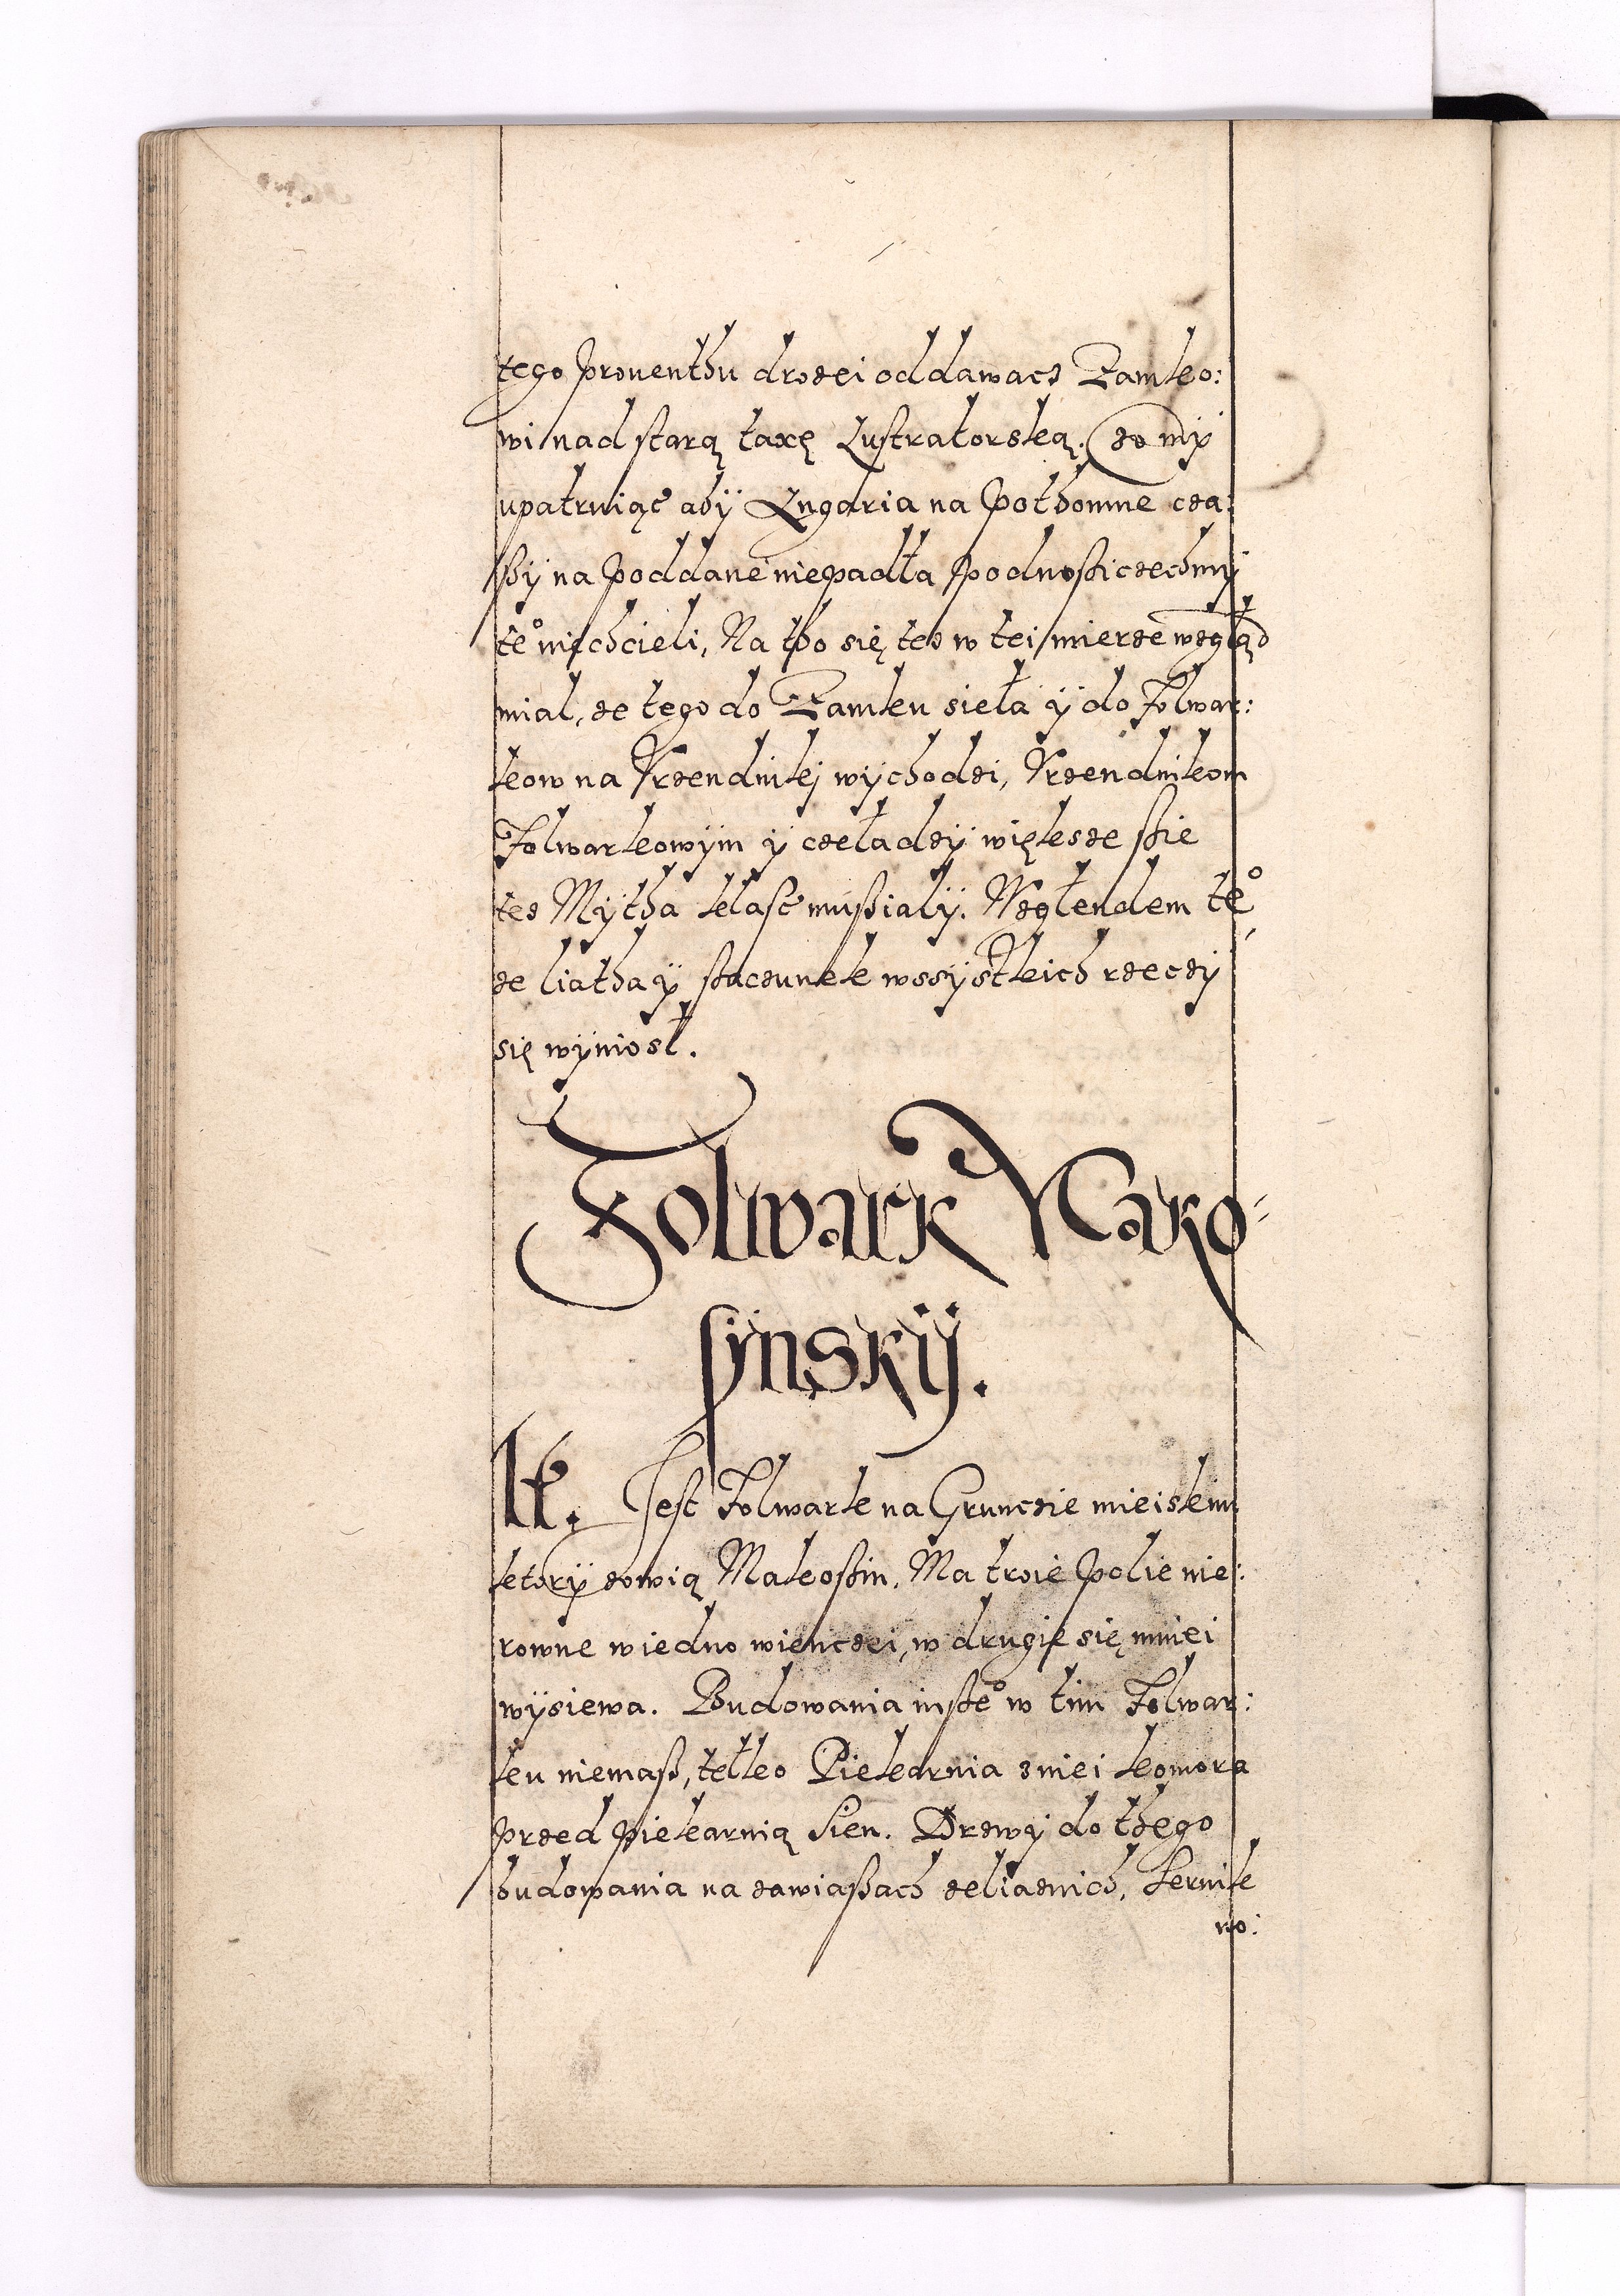 tego proventhu drozei oddawacz Zamko:
wi nad starą taxę Lustratorską. Co mÿ
upatruiąc abÿ Angaria na pothomne cza:
ßÿ na poddane niepadła podnoßic zechmÿ
te° niechcieli, Na tho się tez w tei mierze wzgląd
mial, ze tego do Zamku sieła ÿ do Folwar:
kow na Vrzendniki wÿchodzi, Vrzendnikom
Folwarkowÿm ÿ czeladzÿ większe ßie
tez Mÿtha klasc mußialÿ. Wzglendem te°
ze liatha ÿ ßacunek wssÿstkich rzeczÿ
się wÿniosł.
Folwark Mako=
sÿnskÿ.
It. Jest Folwark na Grunczie mieiskim
ktorÿ zowią Makoßin. Ma troie polie nie:
rowne w iedno wienczei, w drugie się mniei
wÿsiewa. Budowania inße° w tim Folwar:
ku niemaß, telko Piekarnia z niei komora
przed piekarnią Sien. Drzwÿ do thego
budowania na zawiaßach zeliaznich, kernik
no: